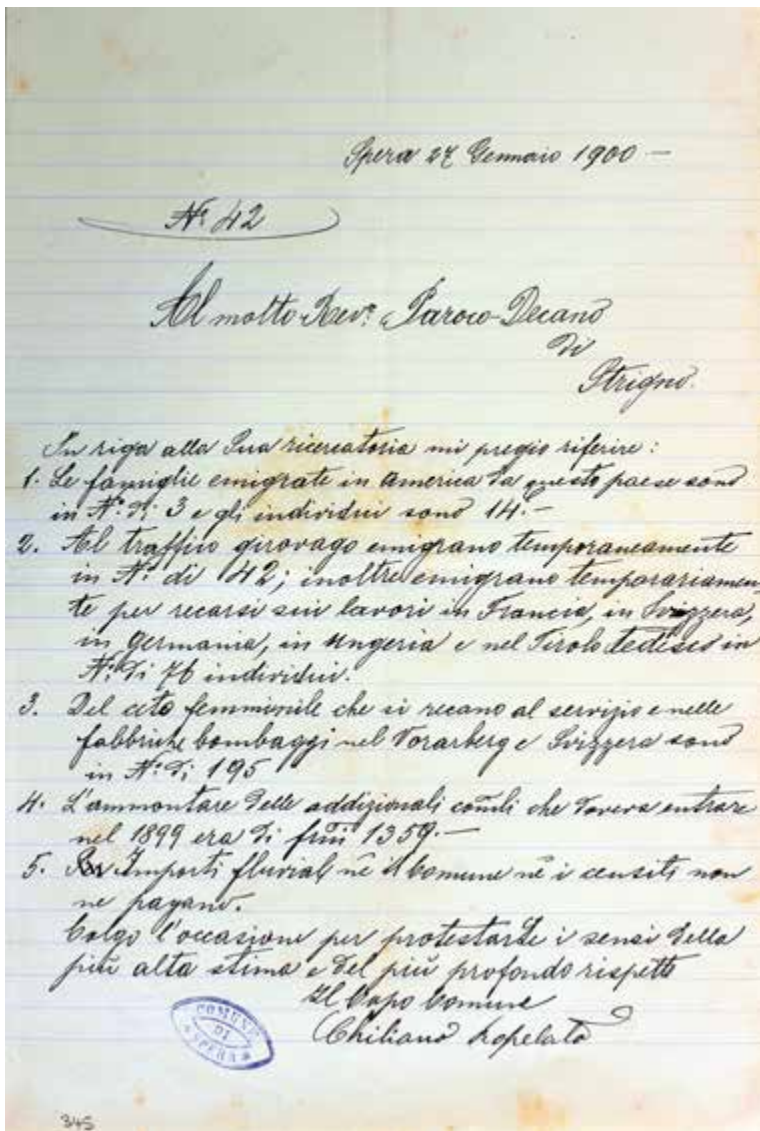 Spera 27 Gennaio 1900 —
N.º 42
Al molto Rev.º Paroco-Decano
di
Strigno.
In riga alla Sua ricercatoria mi pregio riferire:
1. Le famiglie emigrate in America da questo paese sono
in N.º di 3 e gli individui sono 14.—
2. Al traffico girovago emigrano temporaneamente
in N.º di 42; inoltre emigrano temporariamen-
te per recarsi sui lavori in Francia, in Svizzera,
in Germania, in Ungeria e nel Tirolo tedesco in
N.º di 76 individui.
3. Del ceto femminile che si recano al servizio e nelle
fabbriche bombaggi nel Vorarberg e Svizzera sono
in N.º di 195
4. L'ammontare delle addizionali com̃li che doveva entrare
nel 1899 era di frini 1359.—
5. Importi fluviali nè il Comune nè i censiti non
ne pagano.
Colgo l'occasione per protestarLe i sensi della
più alta stima e del più profondo rispetto
Il Capo Comune
Chiliano Ropelato
COMUNE
DI
SPERA
345